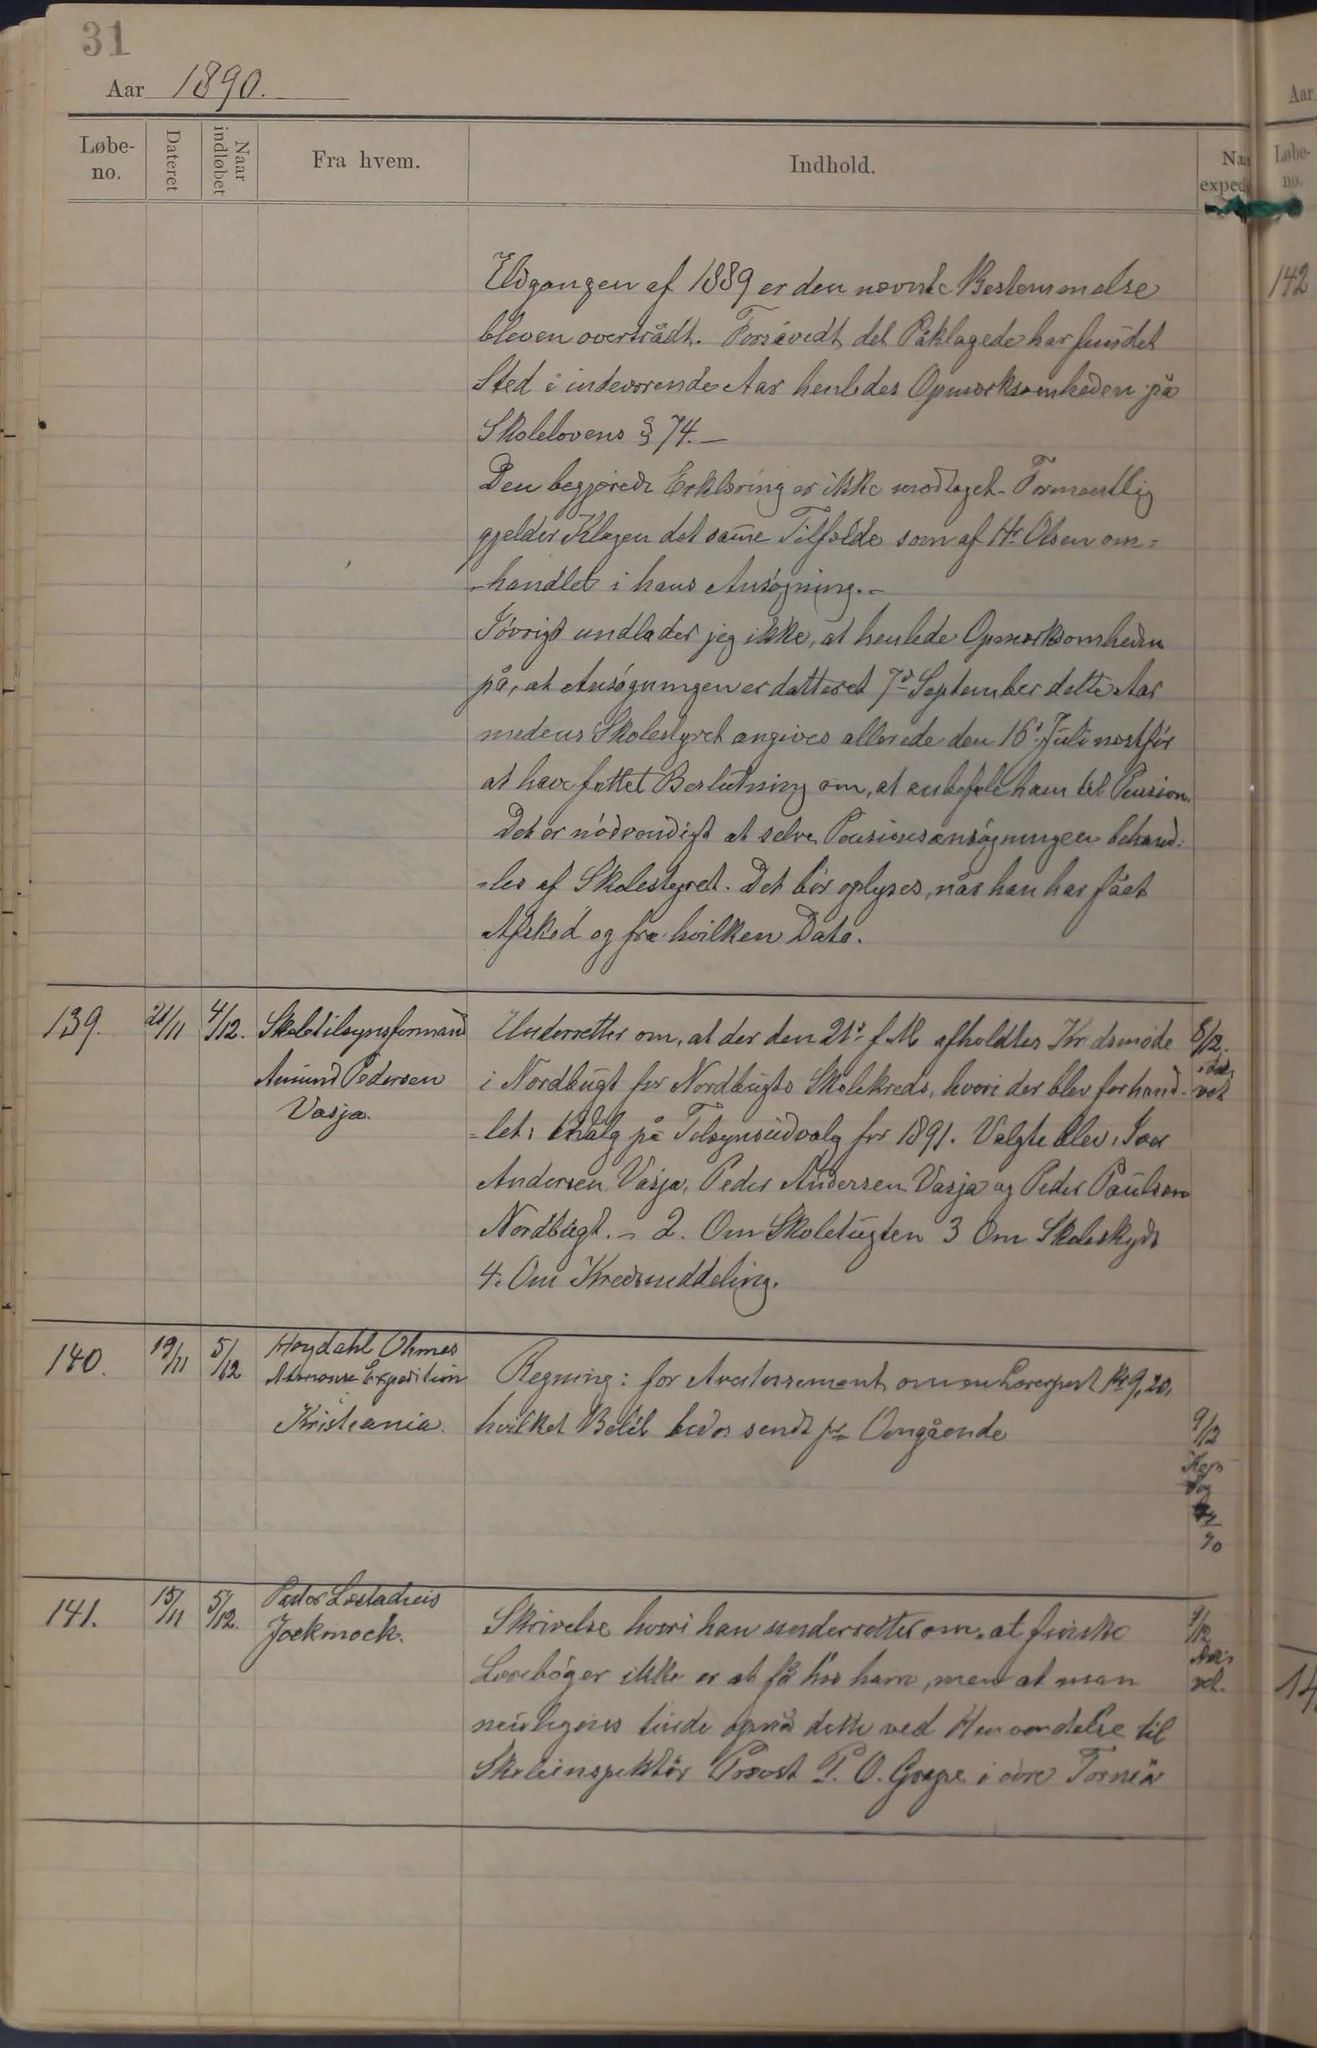 31
Aar 1890.
Løbe-no. Dateret Naar indløbet Fra hvem. Indhold. Naa exped
Udgangen af 1889 er den nævnte Bestemmelse
bleven overtrådt. Forsåvidt det Påklagede har fundet
Sted i indeværende Aar henledes Opmærksomheden på
Skolelovens § 74. —
Den begjærede Erklæring er ikke modtaget. Formentlig
gjelder Klagen det samme Tilfælde som af Hr Olsen om=
-handlet i hans Ansøgning. –
Iøvrigt undlader jeg ikke, at henlede Opmærksomheden
på, at Ansøgningen er datteret 7d September dette Aar
medens Skolestyret angives allerede den 16d Juli næstfør
at have fattet Beslutning om, at anbefale ham til Pension.
Det er nødvendigt at selve Pensionsansøgningen behand=
-les af Skolestyret. Det bør oplyses, når han har fået
Afsked og fra hvilken Dato.
139. 21/11 4/12. Skoletilsynsformand
Amund Pedersen
Vasja.
Underretter om, at der den 21d f. M. afholdtes Kredsmøde
i Nordbugt for Nordbugts Skolekreds, hvori der blev forhand-
=let: Valg på Tilsynsudvalg for 1891. Valgte blev: Iver
Andersen Vasja, Peder Andersen Vasja og Peder Paulsen
Nordbugt. – 2. Om Skoletugten 3 Om Skoleskyds
4. Om Kredsinddeling.
8/12.
140. 19/11 5/12 Høydahl Ohmes
Annonse Expedition
Kristiania.
Regning: for Avertissement om en Lærerpost Kr 9,20,
hvilket Beløb bedes sendt pr Omgående
9/12
141. 15/11 5/12. Pastor Læstadius
Jockmock.
Skrivelse hvori han underretter om, at finske
Lærebøger ikke er at få hos ham, men at man
muligens turde opnå dette ved Henvendelse til
Skoleinspektør Provst P. O. Grape i övre Torneå
Aar
Løbe-
no.
142
14